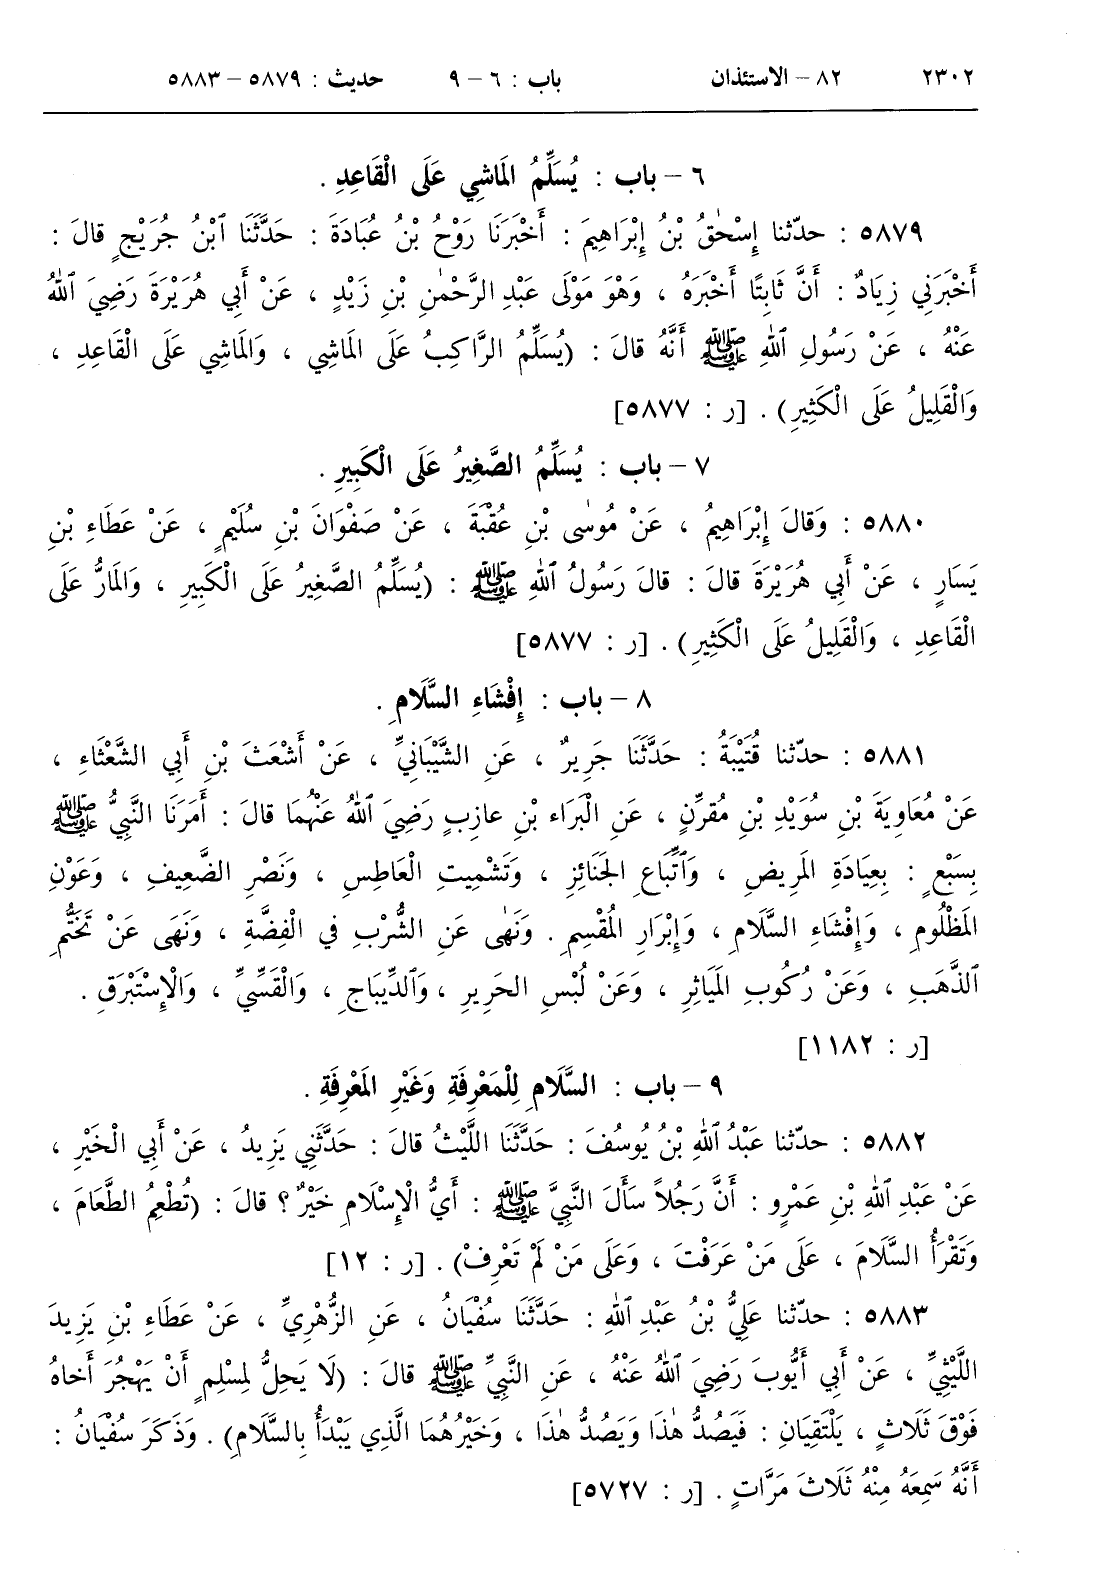 ٢٣٠٢ ٨٢ – الاستئذان باب : ٦ – ٩ حديث : ٥٨٧٩ – ٥٨٨٣
٦ – باب : يُسَلِّمُ المَاشِي عَلَى الْقَاعِدِ .
٥٨٧٩ : حدّثنا إِسْحٰقُ بْنُ إِبْرَاهِيمَ : أَخْبَرَنَا رَوْحُ بْنُ عُبَادَةَ : حَدَّثَنَا ٱبْنُ جُرَيْجٍ قالَ :
أَخْبَرَنِي زِيَادٌ : أَنَّ ثَابِتًا أَخْبَرَهُ ، وَهْوَ مَوْلَى عَبْدِ الرَّحْمٰنِ بْنِ زَيْدٍ ، عَنْ أَبِي هُرَيْرَةَ رَضِيَ ٱللهُ
عَنْهُ ، عَنْ رَسُولِ ٱللهِ ﷺ أَنَّهُ قالَ : (يُسَلِّمُ الرَّاكِبُ عَلَى المَاشِي ، وَالمَاشِي عَلَى الْقَاعِدِ ،
وَالْقَلِيلُ عَلَى الْكَثِيرِ) . [ر : ٥٨٧٧]
٧ – باب : يُسَلِّمُ الصَّغِيرُ عَلَى الْكَبِيرِ .
٥٨٨٠ : وَقالَ إِبْرَاهِيمُ ، عَنْ مُوسٰى بْنِ عُقْبَةَ ، عَنْ صَفْوَانَ بْنِ سُلَيْمٍ ، عَنْ عَطَاءِ بْنِ
يَسَارٍ ، عَنْ أَبِي هُرَيْرَةَ قالَ : قالَ رَسُولُ ٱللهِ ﷺ : (يُسَلِّمُ الصَّغِيرُ عَلَى الْكَبِيرِ ، وَالمَارُّ عَلَى
الْقَاعِدِ ، وَالْقَلِيلُ عَلَى الْكَثِيرِ) . [ر : ٥٨٧٧]
٨ – باب : إِفْشَاءِ السَّلَامِ .
٥٨٨١ : حدّثنا قُتَيْبَةُ : حَدَّثَنَا جَرِيرٌ ، عَنِ الشَّيْبَانِيِّ ، عَنْ أَشْعَثَ بْنِ أَبِي الشَّعْثَاءِ ،
عَنْ مُعَاوِيَةَ بْنِ سُوَيْدِ بْنِ مُقَرِّنٍ ، عَنِ الْبَرَاءِ بْنِ عازِبٍ رَضِيَ ٱللهُ عَنْهُمَا قالَ : أَمَرَنَا النَّبِيُّ ﷺ
بِسَبْعٍ : بِعِيَادَةِ المَرِيضِ ، وَٱتِّبَاعِ الجَنَائِزِ ، وَتَشْمِيتِ الْعَاطِسِ ، وَنَصْرِ الضَّعِيفِ ، وَعَوْنِ
المَظْلُومِ ، وَإِفْشَاءِ السَّلَامِ ، وَإِبْرَارِ المُقْسِمِ . وَنَهٰى عَنِ الشُّرْبِ فِي الْفِضَّةِ ، وَنَهَى عَنْ تَخَتُّمِ
ٱلذَّهَبِ ، وَعَنْ رُكُوبِ المَيَاثِرِ ، وَعَنْ لُبْسِ الحَرِيرِ ، وَٱلدِّيبَاجِ ، وَالْقَسِّيِّ ، وَالْإِسْتَبْرَقِ .
[ر : ١١٨٢]
٩ – باب : السَّلَامِ لِلْمَعْرِفَةِ وَغَيْرِ المَعْرِفَةِ .
٥٨٨٢ : حدّثنا عَبْدُ ٱللهِ بْنُ يُوسُفَ : حَدَّثَنَا اللَّيْثُ قالَ : حَدَّثَنِي يَزِيدُ ، عَنْ أَبِي الْخَيْرِ ،
عَنْ عَبْدِ ٱللهِ بْنِ عَمْرٍو : أَنَّ رَجُلاً سَأَلَ النَّبِيَّ ﷺ : أَيُّ الْإِسْلَامِ خَيْرٌ ؟ قالَ : (تُطْعِمُ الطَّعَامَ ،
وَتَقْرَأُ السَّلَامَ ، عَلَى مَنْ عَرَفْتَ ، وَعَلَى مَنْ لَمْ تَعْرِفْ) . [ر : ١٢]
٥٨٨٣ : حدّثنا عَلِيُّ بْنُ عَبْدِ ٱللهِ : حَدَّثَنَا سُفْيَانُ ، عَنِ الزُّهْرِيِّ ، عَنْ عَطَاءِ بْنِ يَزِيدَ
اللَّيْثِيِّ ، عَنْ أَبِي أَيُّوبَ رَضِيَ ٱللهُ عَنْهُ ، عَنِ النَّبِيِّ ﷺ قالَ : (لَا يَحِلُّ لِمُسْلِمٍ أَنْ يَهْجُرَ أَخاهُ
فَوْقَ ثَلَاثٍ ، يَلْتَقِيَانِ : فَيَصُدُّ هٰذَا وَيَصُدُّ هٰذَا ، وَخَيْرُهُمَا الَّذِي يَبْدَأُ بِالسَّلَامِ) . وَذَكَرَ سُفْيَانُ :
أَنَّهُ سَمِعَهُ مِنْهُ ثَلَاثَ مَرَّاتٍ . [ر : ٥٧٢٧]